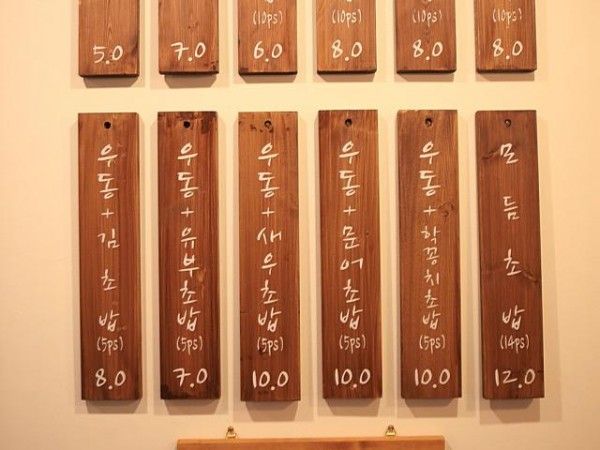 5.0
7.0
(10ps)
6.0
(10ps)
8.0
(10ps)
8.0
(10ps)
8.0
우동+김초밥
(5ps)
8.0
우동+유부초밥
(5ps)
7.0
우동+새우초밥
(5ps)
10.0
우동+문어초밥
(5ps)
10.0
우동+학꽁치초밥
(5ps)
10.0
모듬초밥
(14ps)
12.0